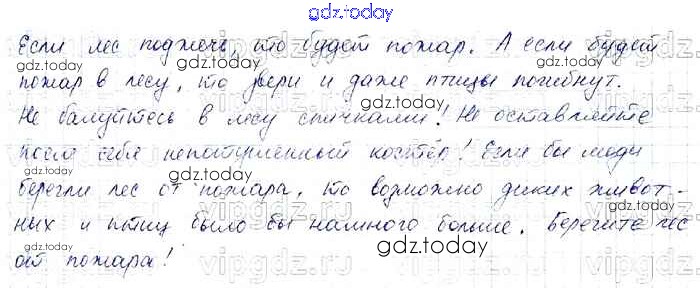 gdz.today
Если лес поджечь, то будет пожар. А если будет
пожар в лесу, то звери и даже птицы погибнут.
Не балуйтесь в лесу спичками! Не оставляйте
после себя непотушенный костёр! Если бы люди
берегли лес от пожара, то возможно диких живот-
ных и птиц было бы намного больше. Берегите лес
от пожара!
gdz.today